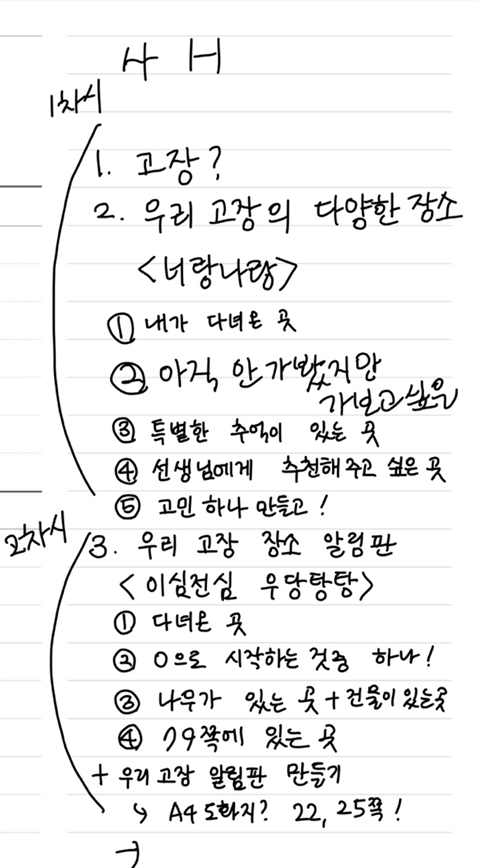 사 H
1차시
1. 고장?
2. 우리 고장의 다양한 장소
<너랑나랑>
① 내가 다녀온 곳
② 아직 안가봤지만
가보고싶은
③ 특별한 추억이 있는 곳
④ 선생님에게 추천해주고 싶은 곳
⑤ 고민 하나 만들고!
2차시
3. 우리 고장 장소 알림판
<이심전심 우당탕탕>
① 다녀온 곳
② 0으로 시작하는 것중 하나!
③ 나무가 있는 곳 + 건물이 있는곳
④ 79쪽에 있는 곳
+ 우리 고장 알림판 만들기
↳ A4 도화지? 22, 25쪽!